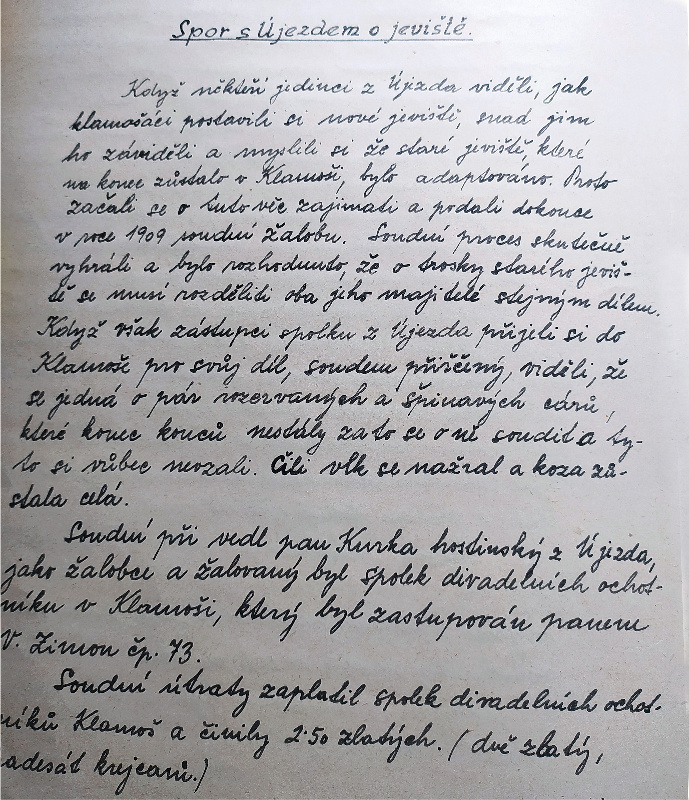 Spor s Újezdem o jeviště.
Když někteří jedinci z Újezda viděli, jak
klamošáci postavili si nové jeviště, snad jim
ho záviděli a myslili si že staré jeviště, které
na konec zůstalo v Klamoši, bylo adaptováno. Proto
začali se o tuto věc zajímati a podali dokonce
v roce 1909 soudní žalobu. Soudní proces skutečně
vyhráli a bylo rozhodnuto, že o trosky starého jeviš-
tě se musí rozděliti oba jeho majitelé stejným dílem.
Když však zástupci spolku z Újezda přijeli si do
Klamoše pro svůj díl, soudem přiřčený, viděli, že
se jedná o pár rozervaných a špinavých cárů,
které konec konců nestály za to se o ně soudit a ty-
to si vůbec nevzali. Čili vlk se nažral a koza zů-
stala celá.
Soudní při vedl pan Kurka hostinský z Újezda,
jako žalobce a žalovaný byl spolek divadelních ochot-
níku v Klamoši, který byl zastupován panem
V. Zimou čp. 73.
Soudní útraty zaplatil spolek divadelních ochot-
níků Klamoš a činily 2·50 zlatých. (dvě zlatý,
adesát krejcarů.)